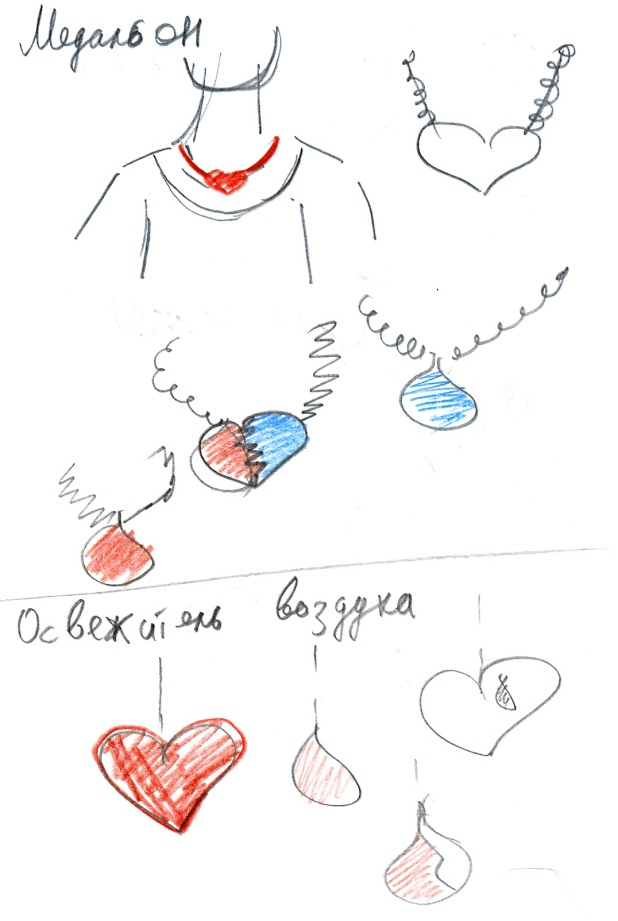 Медальон
Освежитель воздуха